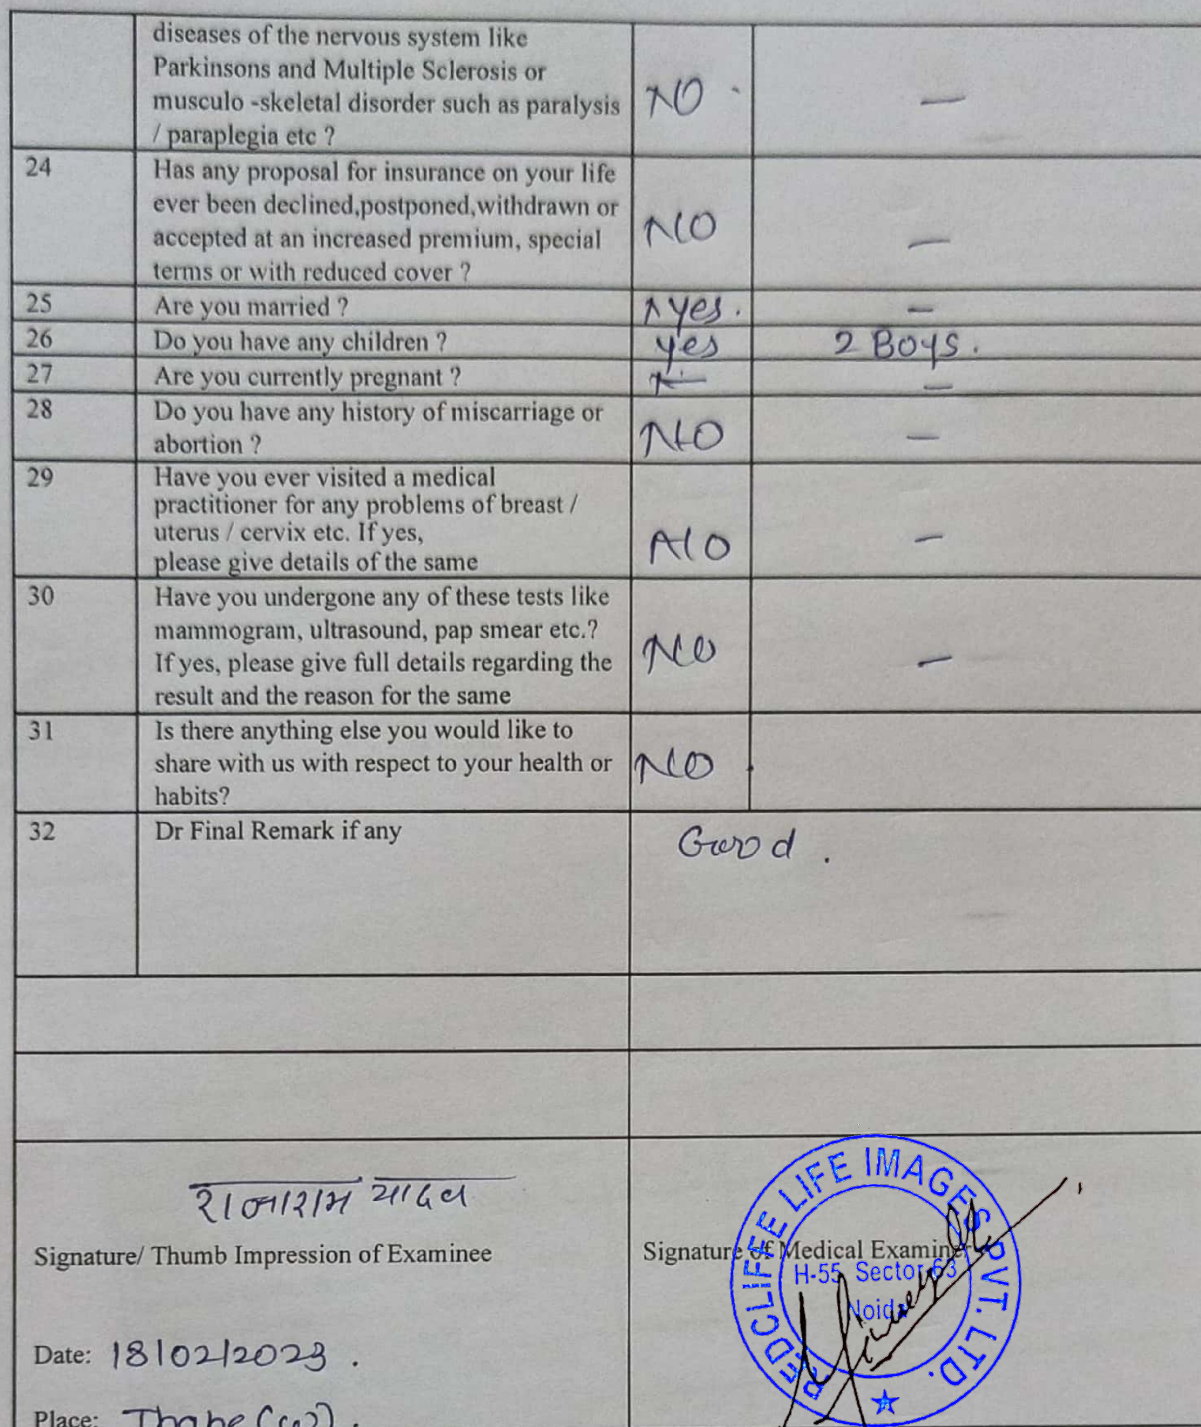 diseases of the nervous system like
Parkinsons and Multiple Sclerosis or
musculo -skeletal disorder such as paralysis
/ paraplegia etc ?
NO -
—
24
Has any proposal for insurance on your life
ever been declined,postponed,withdrawn or
accepted at an increased premium, special
terms or with reduced cover ?
NO
—
25 Are you married ? yes. —
26 Do you have any children ? yes 2 Boys.
27 Are you currently pregnant ? —
28
Do you have any history of miscarriage or
abortion ?
NO
—
29
Have you ever visited a medical
practitioner for any problems of breast /
uterus / cervix etc. If yes,
please give details of the same
NO
—
30
Have you undergone any of these tests like
mammogram, ultrasound, pap smear etc.?
If yes, please give full details regarding the
result and the reason for the same
NO
—
31
Is there anything else you would like to
share with us with respect to your health or
habits?
NO
32 Dr Final Remark if any Good.
राजाराम यादव
Signature/ Thumb Impression of Examinee
Signature of Medical Examiner
REDCLIFFE LIFE IMAGES PVT. LTD.
H-55 Sector 63
Noida
Date: 18/02/2023.
Place: Thane (w).